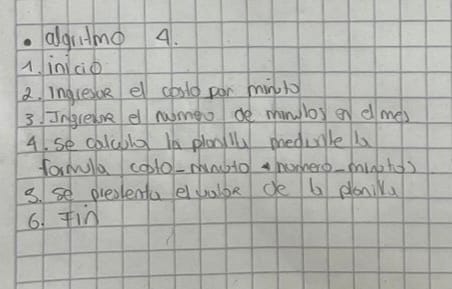 • algritmo 4.
1. inicio
2. Ingresar el costo por minuto
3. Ingresar el numero de minutos en el mes
4. se calcula la planilla mediante la
formula costo-minuto * numero-minutos
5. se presenta el valor de la planilla
6. Fin